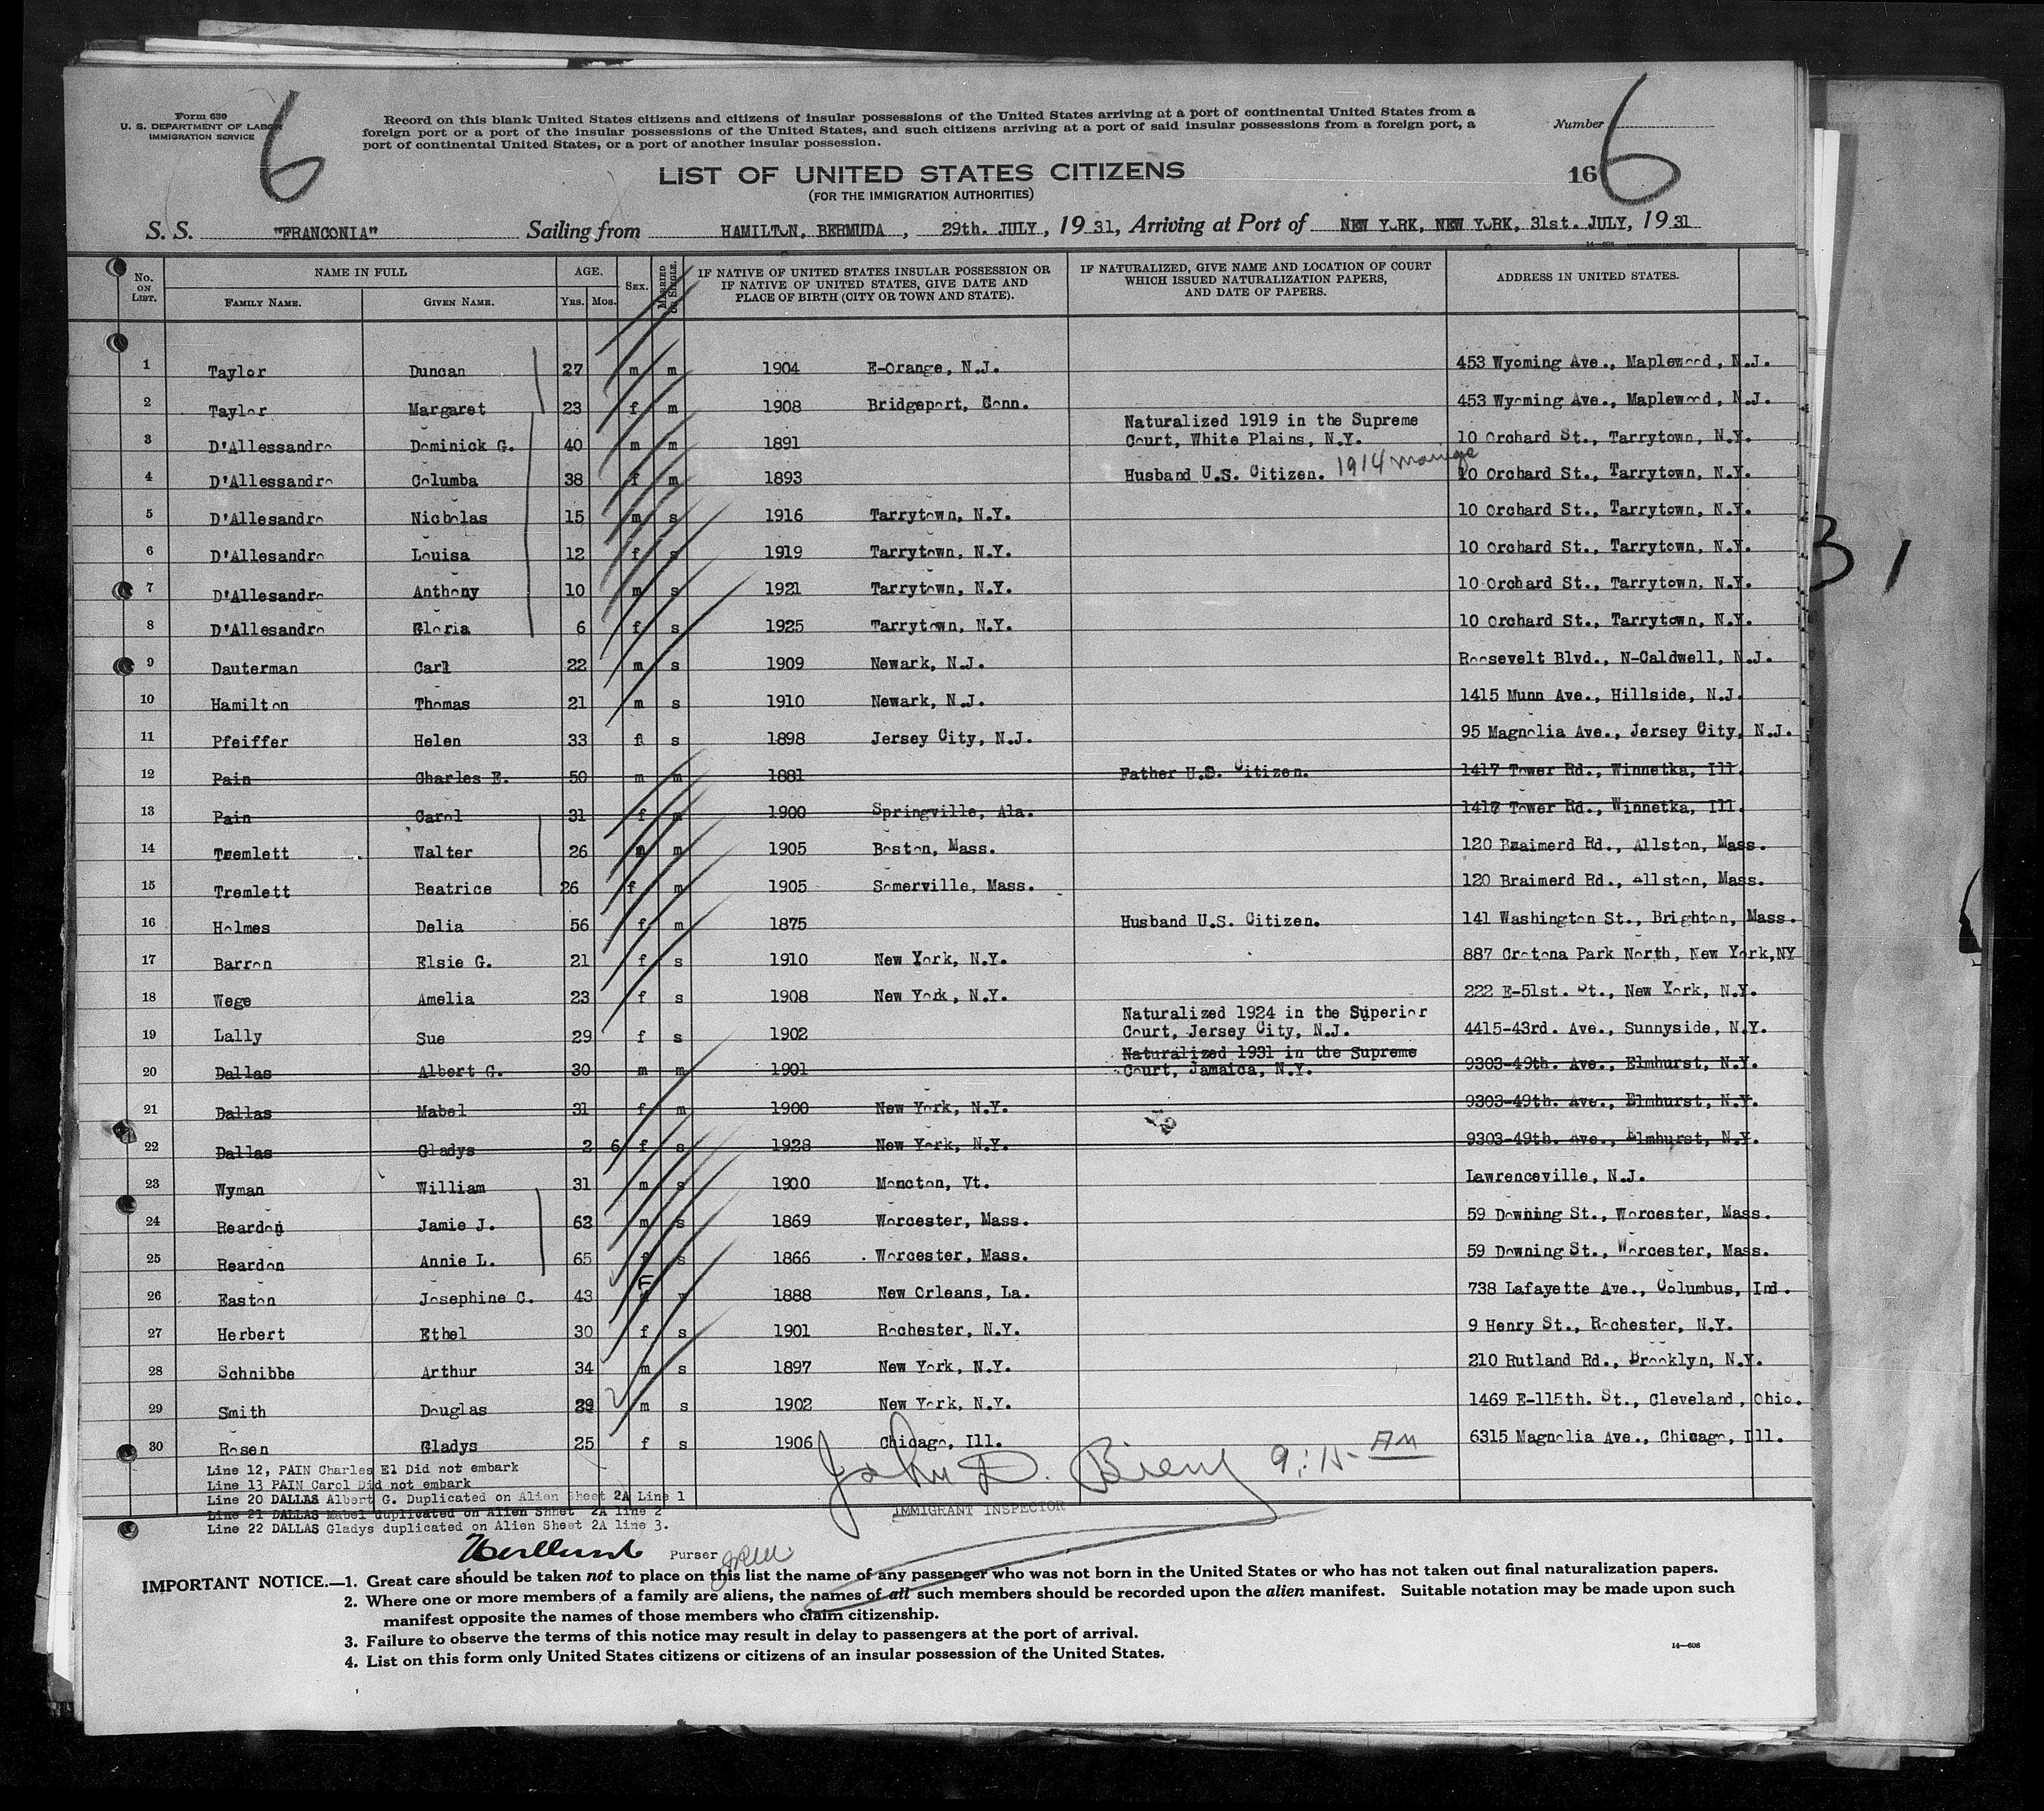 6
6
Form 630
U. S. DEPARTMENT OF LABOR
IMMIGRATION SERVICE
Record on this blank United States citizens and citizens of insular possessions of the United States arriving at a port of continental United States from a
foreign port or a port of the insular possessions of the United States, and such citizens arriving at a port of said insular possessions from a foreign port, a
port of continental United States, or a port of another insular possession.
Number
LIST OF UNITED STATES CITIZENS
(FOR THE IMMIGRATION AUTHORITIES)
16
S. S. "FRANCONIA" Sailing from HAMILTON, BERMUDA, 29th. JULY, 1931, Arriving at Port of NEW YORK, NEW YORK, 31st. JULY, 1931
No. ON LIST. NAME IN FULL FAMILY NAME. GIVEN NAME. AGE. Yrs. Mos. SEX. MARRIED OR SINGLE. IF NATIVE OF UNITED STATES INSULAR POSSESSION OR IF NATIVE OF UNITED STATES, GIVE DATE AND PLACE OF BIRTH (CITY OR TOWN AND STATE). IF NATURALIZED, GIVE NAME AND LOCATION OF COURT WHICH ISSUED NATURALIZATION PAPERS, AND DATE OF PAPERS. ADDRESS IN UNITED STATES.
1 Taylor Duncan 27 m m 1904 E-Orange, N.J. 453 Wyoming Ave., Maplewood, N.J.
2 Taylor Margaret 23 f m 1908 Bridgeport, Conn. 453 Wyoming Ave., Maplewood, N.J.
3 D'Allessandro Dominick G. 40 m m 1891 Naturalized 1919 in the Supreme Court, White Plains, N.Y. 10 Orchard St., Tarrytown, N.Y.
4 D'Allessandro Columba 38 f m 1893 Husband U.S. Citizen. 1914 marriage 10 Orchard St., Tarrytown, N.Y.
5 D'Allesandro Nicholas 15 m s 1916 Tarrytown, N.Y. 10 Orchard St., Tarrytown, N.Y.
6 D'Allesandro Louisa 12 f s 1919 Tarrytown, N.Y. 10 Orchard St., Tarrytown, N.Y.
7 D'Allesandro Anthony 10 m s 1921 Tarrytown, N.Y. 10 Orchard St., Tarrytown, N.Y.
8 D'Allesandro Gloria 6 f s 1925 Tarrytown, N.Y. 10 Orchard St., Tarrytown, N.Y.
9 Dauterman Carl 22 m s 1909 Newark, N.J. Roosevelt Blvd., N-Caldwell, N.J.
10 Hamilton Thomas 21 m s 1910 Newark, N.J. 1415 Munn Ave., Hillside, N.J.
11 Pfeiffer Helen 33 f s 1898 Jersey City, N.J. 95 Magnolia Ave., Jersey City, N.J.
12 Pain Charles E. 50 m m 1881 Father U.S. Citizen. 1417 Tower Rd., Winnetka, Ill.
13 Pain Carol 31 f m 1900 Springville, Ala. 1417 Tower Rd., Winnetka, Ill.
14 Tremlett Walter 26 m m 1905 Boston, Mass. 120 Braimerd Rd., Allston, Mass.
15 Tremlett Beatrice 26 f m 1905 Somerville, Mass. 120 Braimerd Rd., Allston, Mass.
16 Holmes Delia 56 f m 1875 Husband U.S. Citizen. 141 Washington St., Brighton, Mass.
17 Barron Elsie G. 21 f s 1910 New York, N.Y. 887 Crotona Park North, New York,NY
18 Wege Amelia 23 f s 1908 New York, N.Y. 222 E-51st. St., New York, N.Y.
19 Lally Sue 29 f s 1902 Naturalized 1924 in the Superior Court, Jersey City, N.J. 4415-43rd. Ave., Sunnyside, N.Y.
20 Dallas Albert G. 30 m m 1901 Naturalized 1931 in the Supreme Court, Jamaica, N.Y. 9303-49th. Ave., Elmhurst, N.Y.
21 Dallas Mabel 31 f m 1900 New York, N.Y. 9303-49th. Ave., Elmhurst, N.Y.
22 Dallas Gladys 2 6 f s 1928 New York, N.Y. 9303-49th. Ave., Elmhurst, N.Y.
23 Wyman William 31 m s 1900 Moncton, Vt. Lawrenceville, N.J.
24 Reardon Jamie J. 62 m s 1869 Worcester, Mass. 59 Downing St., Worcester, Mass.
25 Reardon Annie L. 65 f s 1866 Worcester, Mass. 59 Downing St., Worcester, Mass.
26 Easton Josephine C. 43 F 1888 New Orleans, La. 738 Lafayette Ave., Columbus, Ind.
27 Herbert Ethel 30 f s 1901 Rochester, N.Y. 9 Henry St., Rochester, N.Y.
28 Schnibbe Arthur 34 m s 1897 New York, N.Y. 210 Rutland Rd., Brooklyn, N.Y.
29 Smith Douglas 29 m s 1902 New York, N.Y. 1469 E-115th. St., Cleveland, Ohio.
30 Rosen Gladys 25 f s 1906 Chicago, Ill. 6315 Magnolia Ave., Chicago, Ill.
Line 12, PAIN Charles El Did not embark
Line 13 PAIN Carol Did not embark
Line 20 DALLAS Albert G. Duplicated on Alien Sheet 2A Line 1
Line 21 DALLAS Mabel duplicated on Alien Sheet 2A line 2
Line 22 DALLAS Gladys duplicated on Alien Sheet 2A line 3.
John D. 9:15 AM
IMMIGRANT INSPECTOR
Purser
IMPORTANT NOTICE.—1. Great care should be taken not to place on this list the name of any passenger who was not born in the United States or who has not taken out final naturalization papers.
2. Where one or more members of a family are aliens, the names of all such members should be recorded upon the alien manifest. Suitable notation may be made upon such
manifest opposite the names of those members who claim citizenship.
3. Failure to observe the terms of this notice may result in delay to passengers at the port of arrival.
4. List on this form only United States citizens or citizens of an insular possession of the United States.
14—608
31